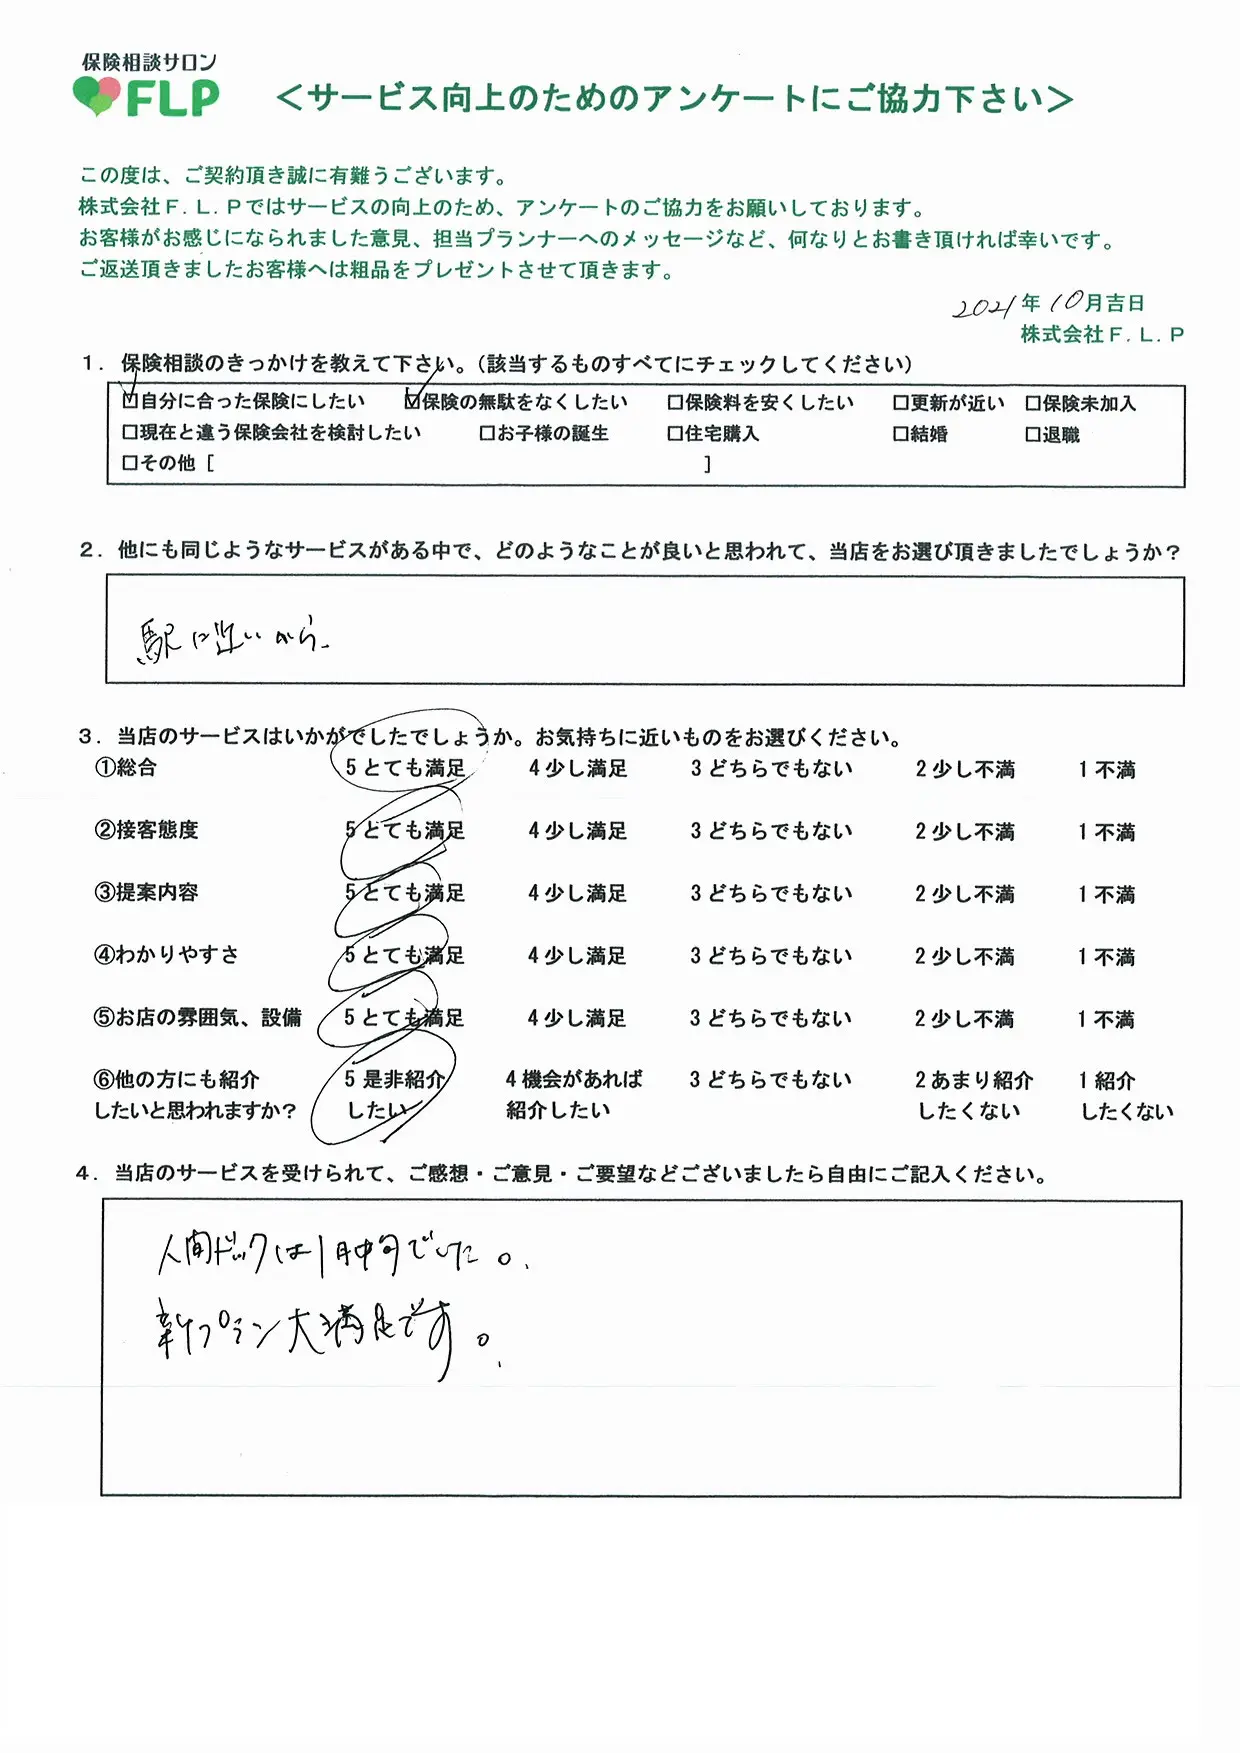 保険相談サロン
FLP
＜サービス向上のためのアンケートにご協力下さい＞
この度は、ご契約頂き誠に有難うございます。
株式会社Ｆ．Ｌ．Ｐではサービスの向上のため、アンケートのご協力をお願いしております。
お客様がお感じになられました意見、担当プランナーへのメッセージなど、何なりとお書き頂ければ幸いです。
ご返送頂きましたお客様へは粗品をプレゼントさせて頂きます。
2021年10月吉日
株式会社Ｆ．Ｌ．Ｐ
１．保険相談のきっかけを教えて下さい。（該当するものすべてにチェックしてください）
☑自分に合った保険にしたい ☑保険の無駄をなくしたい □保険料を安くしたい □更新が近い □保険未加入
□現在と違う保険会社を検討したい □お子様の誕生 □住宅購入 □結婚 □退職
□その他［ ］
２．他にも同じようなサービスがある中で、どのようなことが良いと思われて、当店をお選び頂きましたでしょうか？
駅に近いから。
３．当店のサービスはいかがでしたでしょうか。お気持ちに近いものをお選びください。
①総合 5 とても満足 4 少し満足 3 どちらでもない 2 少し不満 1 不満
②接客態度 5 とても満足 4 少し満足 3 どちらでもない 2 少し不満 1 不満
③提案内容 5 とても満足 4 少し満足 3 どちらでもない 2 少し不満 1 不満
④わかりやすさ 5 とても満足 4 少し満足 3 どちらでもない 2 少し不満 1 不満
⑤お店の雰囲気、設備 5 とても満足 4 少し満足 3 どちらでもない 2 少し不満 1 不満
⑥他の方にも紹介 5 是非紹介 4 機会があれば 3 どちらでもない 2 あまり紹介 1 紹介
したいと思われますか？ したい 紹介したい したくない したくない
４．当店のサービスを受けられて、ご感想・ご意見・ご要望などございましたら自由にご記入ください。
人間ドックは1月中旬でした。
新プラン大満足です。